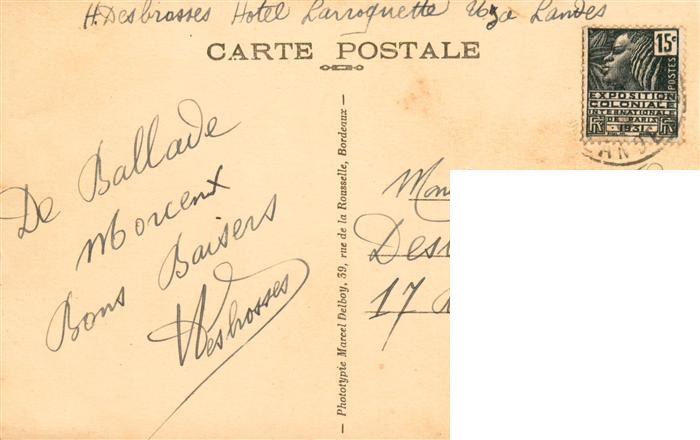 H. Desbrosses Hotel Larroquette Uza Landes
CARTE POSTALE
15c
POSTES
EXPOSITION
COLONIALE
INTERNATIONALE
DE PARIS
1931
RF RF
De Ballade
Morceux
Bons Baisers
HDesbrosses
Phototypie Marcel Delboy, 39, rue de la Rousselle, Bordeaux
17